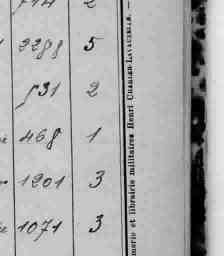 714 2
2288 5
531 2
468 1
1201 3
1071 3
merie et librairie militaires Henri CHARLES-LAVAUZELLE. —